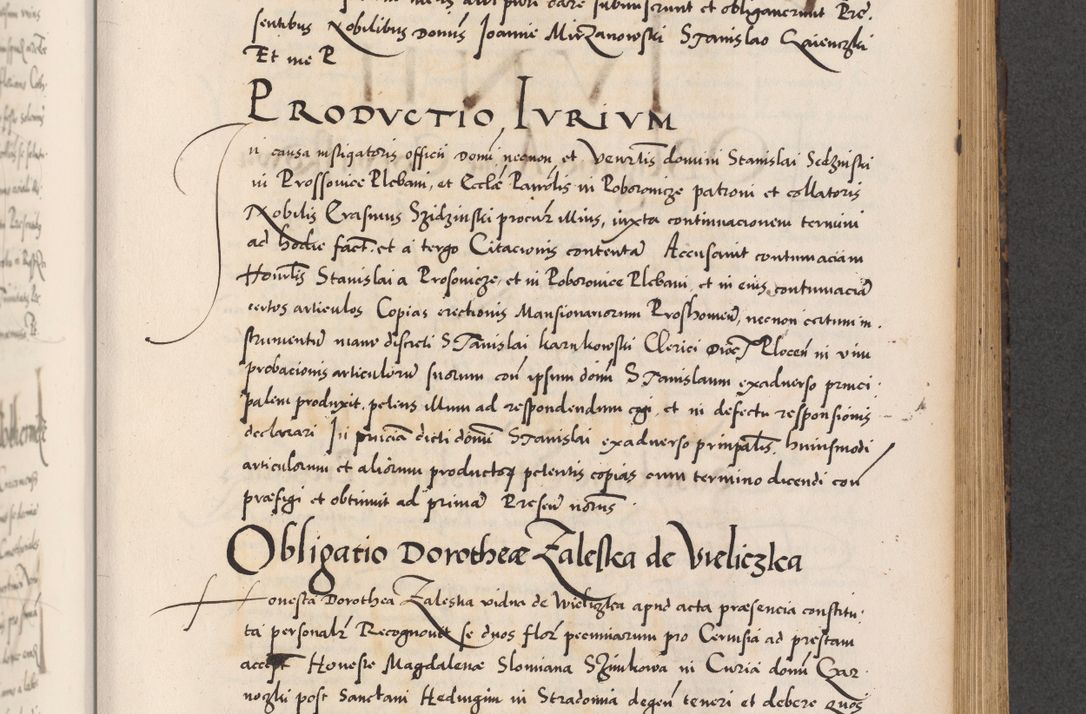 sentibus Nobilibus Domīs Joanne Mirzanowski Stanislao Gaienczki
Et me R
PRODVCTIO IVRIVM
In causa instigatoris officii Domi necnon et Venrīlis domini Stanislai Sedzinski
in Prossovice Plebani, et Eccłæ Parrōlis in Poboronicze patroni et collatoris
Nobilis Erasmus Szidzinski procur illius, iuxta continuacionem termini
ad hodie fact. et a tergo Citacionis contentā Accusavit contumaciam
Honrlis Stanislai a Prosonicze, et in Poboronice Plebani, et in eius contumaciā
certos articulos Copias erectionis Mansionariorum Proshouień, necnon certum in
strumentū manu discreti Stanislai Karnkowski Clerici Dioc Plocēn in vim
probacionis articulorū suorum con ipsum domī Stanislaum exadverso princi
palem produxit. petens illum ad respondendum cogi, et in defectu responsionis
declarari In pnīciā dicti domī Stanislai exadverso prinpalis, huiusmodi
articulorum et aliorum productorʒ petentis copias cum termino dicendi con
præfigi et obtinuit ad primā Presen norūs
Obligatio Dorotheæ Zaleska de Vieliczka
Honesta Dorothea Zaleska vidua de Wieliczka apud acta præsencia constitu
ta personalr Recognovit se duos flor pecuniarum pro Cervisia ad prestam
accept Honeste Magdalenæ Slomiana Szimkowa in Curia domī Czar
noczki post Sanctam Hedvigim in Stradomia degen teneri et debere Quos